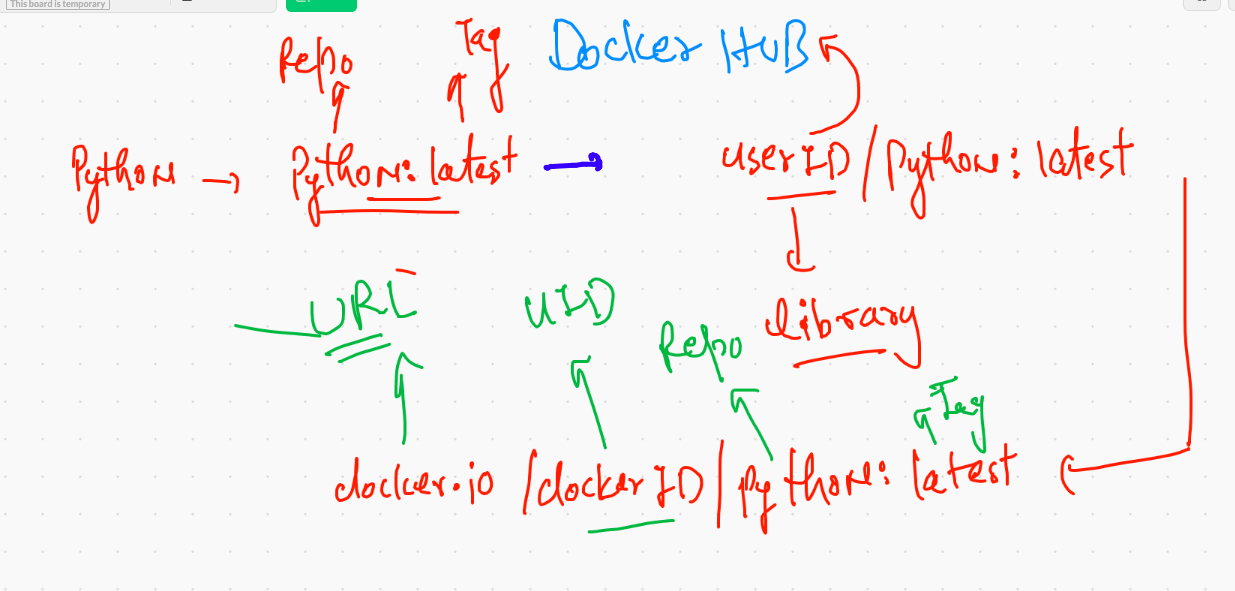 This board is temporary
Repo Tag Docker HUB
Python → Python:latest → userID/Python:latest
URL UID Repo library
Tag
docker.io/dockerID/Python:latest